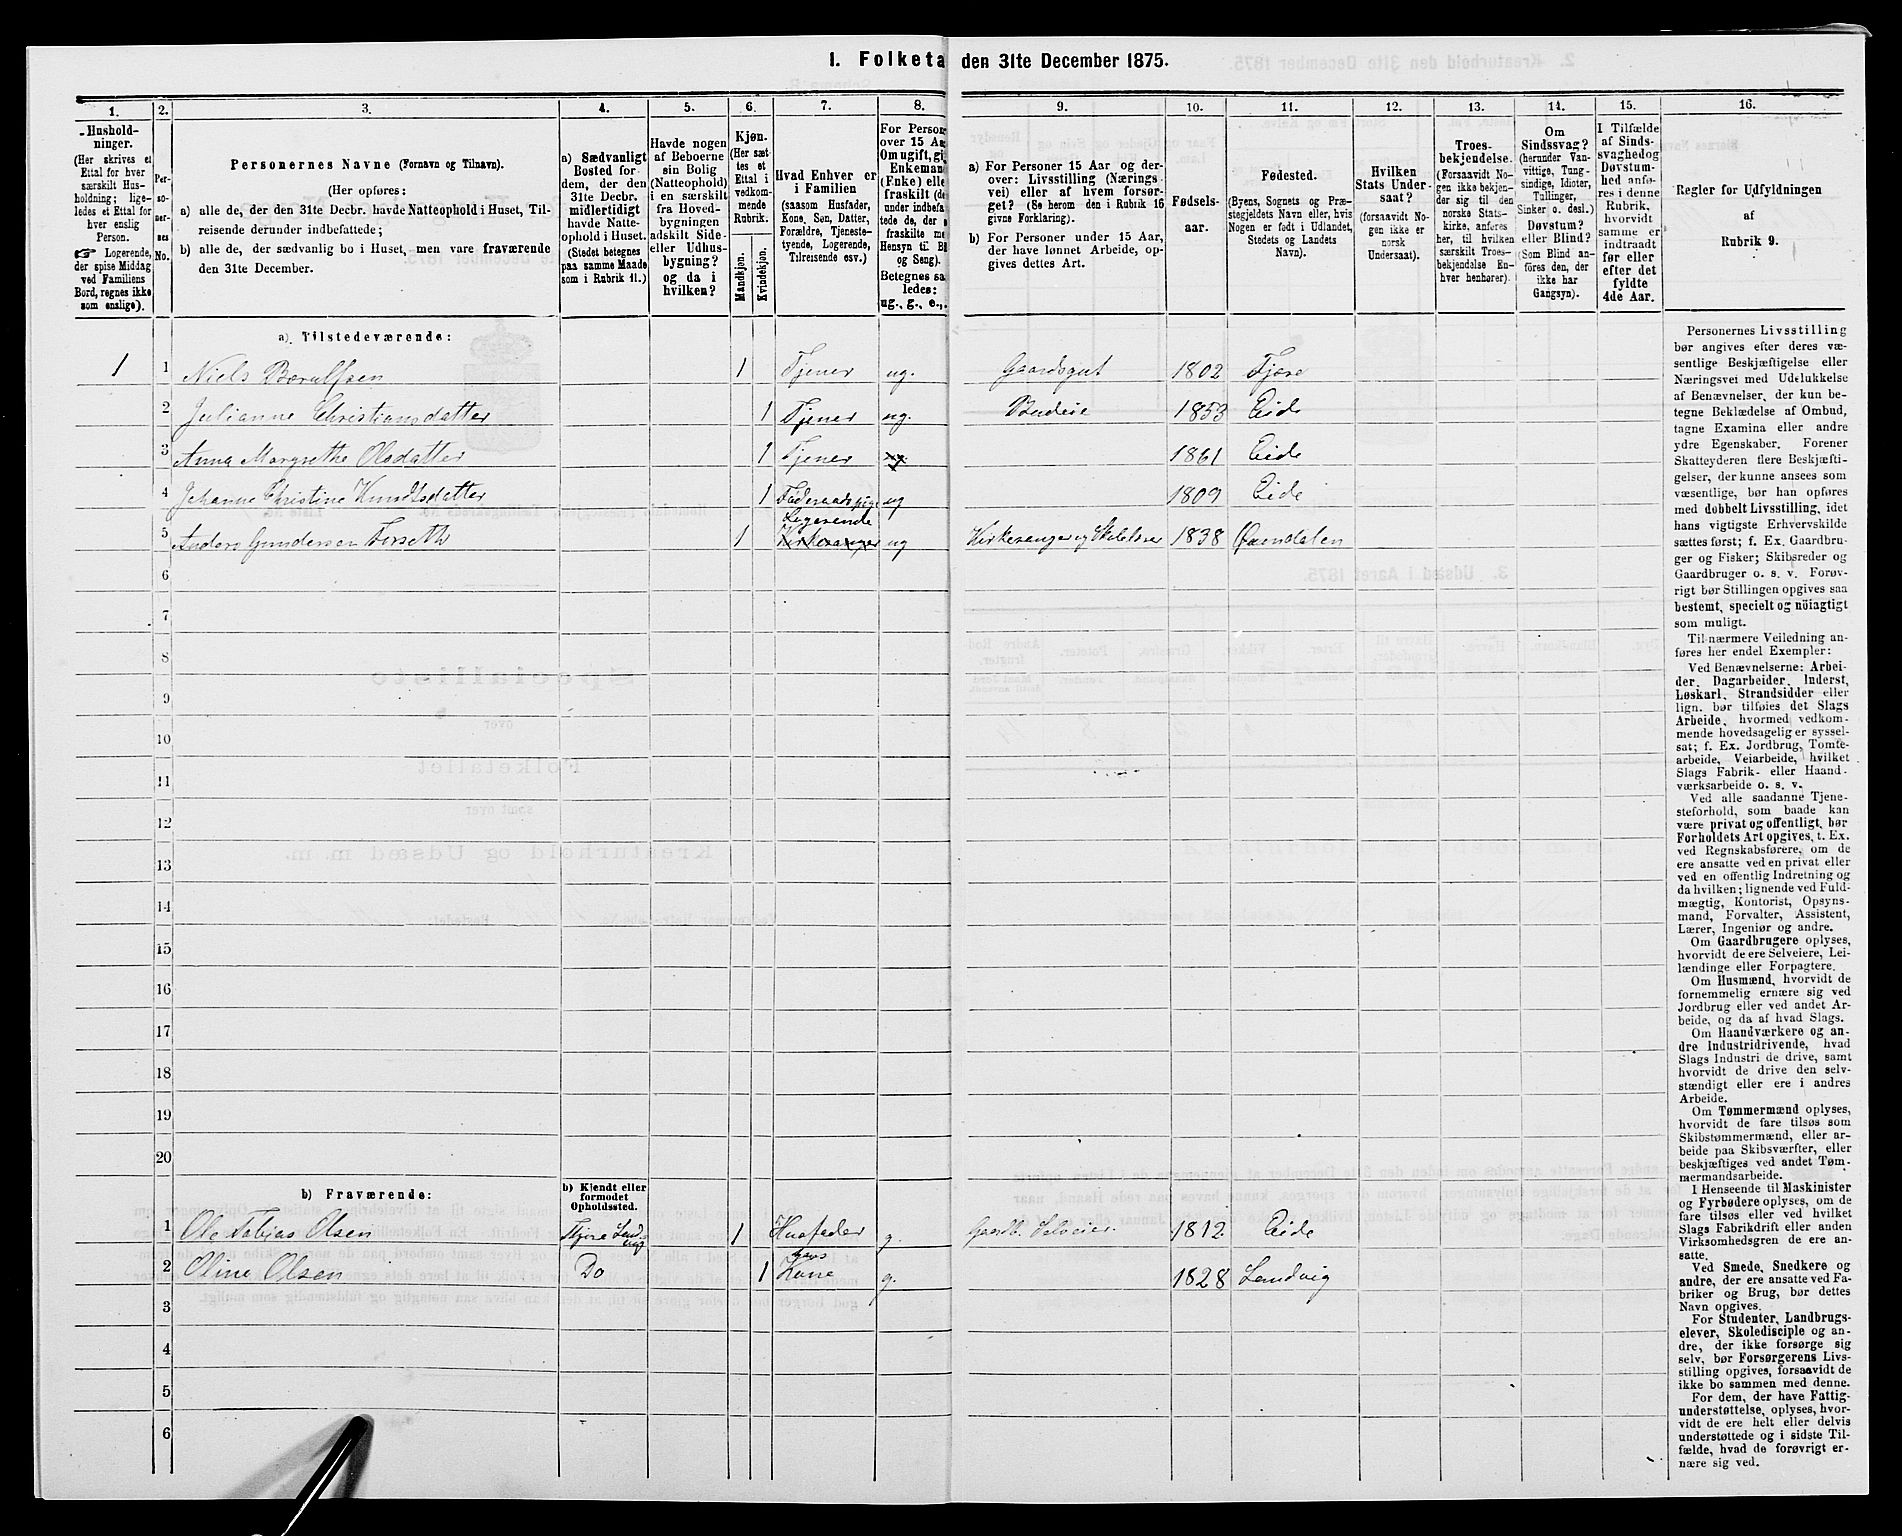 I. Folketa den 31te December 1875.
1. 2. 3. 4. 5. 6. 7. 8. 9. 10. 11. 12. 13. 14. 15. 16.
Hushold-
ninger.
(Her skrives et
Ettal for hver
særskilt Hus-
holdning; lige-
ledes et Ettal for
hver enslig
Person.
☞ Logerende,
der spise Middag
ved Familiens
Bord, regnes ikke
som enslige).
Per-
so-
ner-
nes
No.
Personernes Navne (Fornavn og Tilnavn).
(Her opføres:
a) alle de, der den 31te Decbr. havde Natteophold i Huset, Til-
reisende derunder indbefattede;
b) alle de, der sædvanlig bo i Huset, men vare fraværende
den 31te December.
a) Sædvanligt
Bosted for
dem, der den
31te Decbr.
midlertidigt
havde Natte-
ophold i Huset.
(Stedet betegnes
paa samme Maade
som i Rubrik 11.)
Havde nogen
af Beboerne
sin Bolig
(Natteophold)
i en særskilt
fra Hoved-
bygningen
adskilt Side-
eller Udhus-
bygning?
og da i
hvilken?
Kjøn.
(Her sæt-
tes et
Ettal i
vedkom-
mende
Rubrik.
Mandkjøn.
Kvindekjøn.
Hvad Enhver er
i Familien
(saasom Husfader,
Kone, Søn, Datter,
Forældre, Tjeneste-
tyende, Logerende,
Tilreisende osv.)
For Person
over 15 Aa
Om ugift, gi
Enkeman
(Enke) elle
fraskilt (de
under indbefa
tede de, der e
fraskilte me
Hensyn til B
og Seng).
Betegnes sa
ledes:
ug., g., e.,
a) For Personer 15 Aar og der-
over: Livsstilling (Nærings
vei) eller af hvem forsør-
get? (Se herom den i Rubrik 16
givne Forklaring).
b) For Personer under 15 Aar,
der have lønnet Arbeide, op-
gives dettes Art.
Fødsels-
aar.
Fødested.
(Byens, Sognets og Præ-
stegjeldets Navn eller, hvis
Nogen er født i Udlandet,
Stedets og Landets
Navn).
Hvilken
Stats Under-
saat?
(forsaavidt No-
gen ikke er
norsk
Undersaat).
Troes-
bekjendelse.
(Forsaavidt No-
gen ikke bekjen-
der sig til den
norske Stats-
kirke, anføres
her, til hvilken
særskilt Troes-
bekjendelse En-
hver henhører).
Om
Sindssvag?
(herunder Van-
vittige, Tung-
sindige, Idioter,
Tullinger,
Sinker o. desl.)
Døvstum?
eller Blind?
(Som Blind an-
føres den, der
ikke har
Gangsyn).
I Tilfælde
af Sinds-
svaghed og
Døvstum-
hed anfø-
res i denne
Rubrik,
hvorvidt
samme er
indtraadt
før eller
efter det
fyldte
4de Aar.
Regler for Udfyldningen
af
Rubrik 9.
a) Tilstedeværende:
1 1 Niels Berulfsen 1 Tjener ug. Gaardsgut 1802 Fjære
2 Julianne Christiansdatter 1 Tjener ug. Budeie 1853 Eide
3 Anna Margrethe Olsdatter 1 Tjener 1861 Eide
4 Johanne Christine Knudsdatter 1 Føderaadspige ug 1809 Eide
Logerende
5 Anders Gundersen Forseth 1 Kirkesanger ug Kirkesanger og Skolelærer 1838 Øxendalen
6
7
8
9
10
11
12
13
14
15
16
17
18
19
20
b) Fraværende:
b) Kjendt eller
formodet
Opholdssted.
1 Ole Tobias Olsen 1 Husfader g. Gaardb. Selveier 1812 Eide
hans
2 Oline Olsen Do 1 Kone g. 1828 Landvig
3
4
5
6
Personernes Livsstilling
bør angives efter deres væ-
sentlige Beskjæftigelse eller
Næringsvei med Udelukkelse
af Benævnelser, der kun be-
tegne Beklædelse af Ombud,
tagne Examina eller andre
ydre Egenskaber. Forener
Skatteyderen flere Beskjæfti-
gelser, der kunne ansees som
væsentlige, bør han opføres
med dobbelt Livsstilling, idet
hans vigtigste Erhvervskilde
sættes først; f. Ex. Gaardbru-
ger og Fisker; Skibsreder og
Gaardbruger o. s. v. Forøv-
rigt bør Stillingen opgives saa
bestemt, specielt og nøiagtigt
som muligt.
Til nærmere Veiledning an-
føres her endel Exempler:
Ved Benævnelserne: Arbei-
der, Dagarbeider, Inderst,
Løskarl, Strandsidder eller
lign. bør tilføies det Slags
Arbeide, hvormed vedkom-
mende hovedsagelig er syssel-
sat; f. Ex. Jordbrug, Tomte-
arbeide, Veiarbeide, hvilket
Slags Fabrik- eller Haand-
værksarbeide o. s. v.
Ved alle saadanne Tjene-
steforhold, som baade kan
være privat og offentligt, bør
Forholdets Art opgives, t. Ex.
ved Regnskabsførere, om de
ere ansatte ved en privat eller
ved en offentlig Indretning og
da hvilken; lignende ved Fuld-
mægtig, Kontorist, Opsyns-
mand, Forvalter, Assistent,
Lærer, Ingeniør og andre.
Om Gaardbrugere oplyses,
hvorvidt de ere Selveiere, Lei-
lændinge eller Forpagtere.
Om Husmænd, hvorvidt de
fornemmelig ernære sig ved
Jordbrug eller ved andet Ar-
beide, og da af hvad Slags.
Om Haandværkere og an-
dre Industridrivende, hvad
Slags Industri de drive, samt
hvorvidt de drive den selv-
stændigt eller ere i andres
Arbeide.
Om Tømmermænd oplyses,
hvorvidt de fare tilsøs som
Skibstømmermænd, eller ar-
beide paa Skibsværfter, eller
beskjæftiges ved andet Tøm-
mermandsarbeide.
I Henseende til Maskinister
og Fyrbødere oplyses, om de
fare tilsøs eller ved hvilket
Slags Fabrikdrift eller anden
Virksomhedsgren de ere an-
satte.
Ved Smede, Snedkere og
andre, der ere ansatte ved Fa-
briker og Brug, bør dettes
Navn opgives.
For Studenter, Landbrugs-
elever, Skoledisciple og an-
dre, der ikke forsørge sig
selv, bør Forsørgerens Livs-
stilling opgives, forsaavidt de
ikke bo sammen med denne.
For dem, der have Fattig-
understøttelse, oplyses, hvor-
vidt de ere helt eller delvis
understøttede og i sidste Til-
fælde, hvad de forøvrigt er-
nære sig ved.